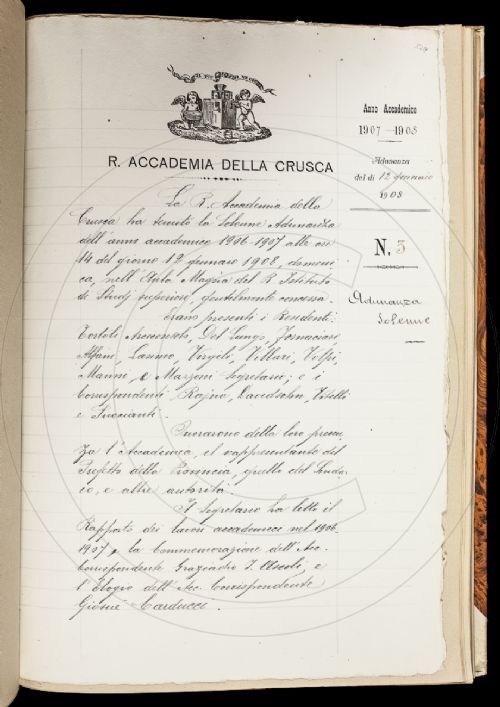 R. ACCADEMIA DELLA CRUSCA
Anno Accademico
1907-1908
Adunanza
del dì 12 gennaio
1908
N. 3
Adunanza
solenne
La R. Accademia della
Crusca ha tenuto la Solenne Adunanza
dell'anno accademico 1906-1907 alle ore
14 del giorno 12 gennaio 1908, domeni-
ca, nell'Aula Magna del R. Istituto
di Studj superiori, gentilmente concessa.
Erano presenti i Residenti:
Tortoli Arciconsolo, Del Lungo, Fornaciari,
Alfani, Tanini, Vergili, Villari, Volpi,
Manni, e Mazzoni Segretario; e i
Corrispondenti Rajna, Davidsohn, Vitelli
e
Onorarono della loro presen-
za l'Accademia, il rappresentante del
Prefetto della Provincia, quello del Sinda-
co, e altre autorità.
Il Segretario ha letto il
Rapporto dei lavori accademici nel 1906-
1907, la Commemorazione dell'Acc.
Corrispondente Graziadio I. Ascoli, e
l'Elogio dell'Acc. Corrispondente
Giosuè Carducci.